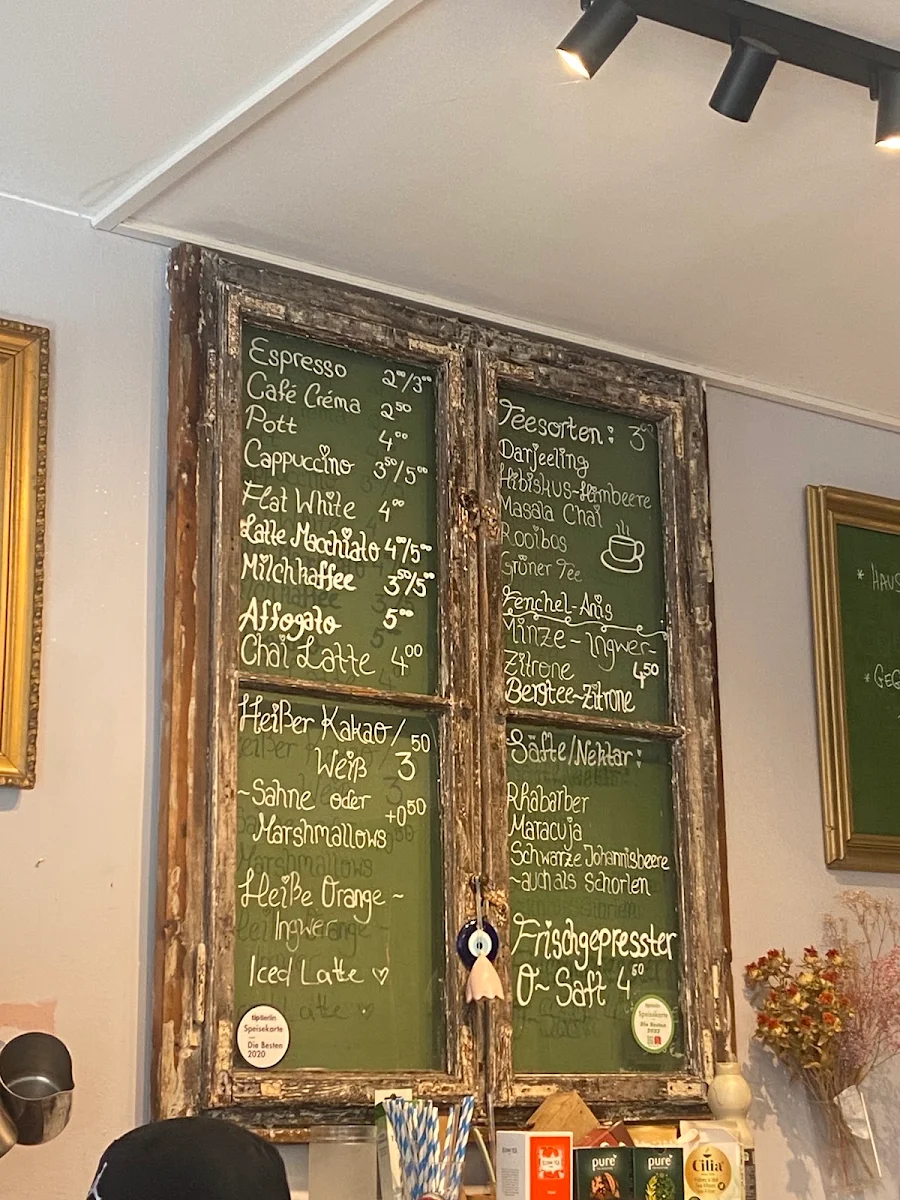 Espresso 2⁰⁰/3⁰⁰
Café Créma 2⁵⁰
Pott 4⁰⁰
Cappuccino 3⁵⁰/5⁰⁰
Flat White 4⁰⁰
Latte Macchiato 4⁰⁰/5⁰⁰
Milchkaffee 3⁵⁰/5
Affogato 5⁰⁰
Chai Latte 4⁰⁰
Heißer Kakao/
Weiß 3⁵⁰
~Sahne oder
Marshmallows +0⁵⁰
Heiße Orange ~
Ingwer
Iced Latte ♡
tipBerlin
Speisekarte
Die Besten
2020
Teesorten: 3⁰⁰
Darjeeling
Hibiskus-Himbeere
Masala Chai
Rooibos
Grüner Tee
Fenchel-Anis
Minze-Ingwer-
Zitrone 4⁵⁰
Bergtee~Zitrone
Säfte/Nektar:
Rhabarber
Maracuja
Schwarze Johannisbeere
~auch als Schorlen
Frischgepresster
O~Saft 4⁵⁰
Speisekarte
Die Besten
2022
* HAUS
* GEG
pure
pure
Cilia